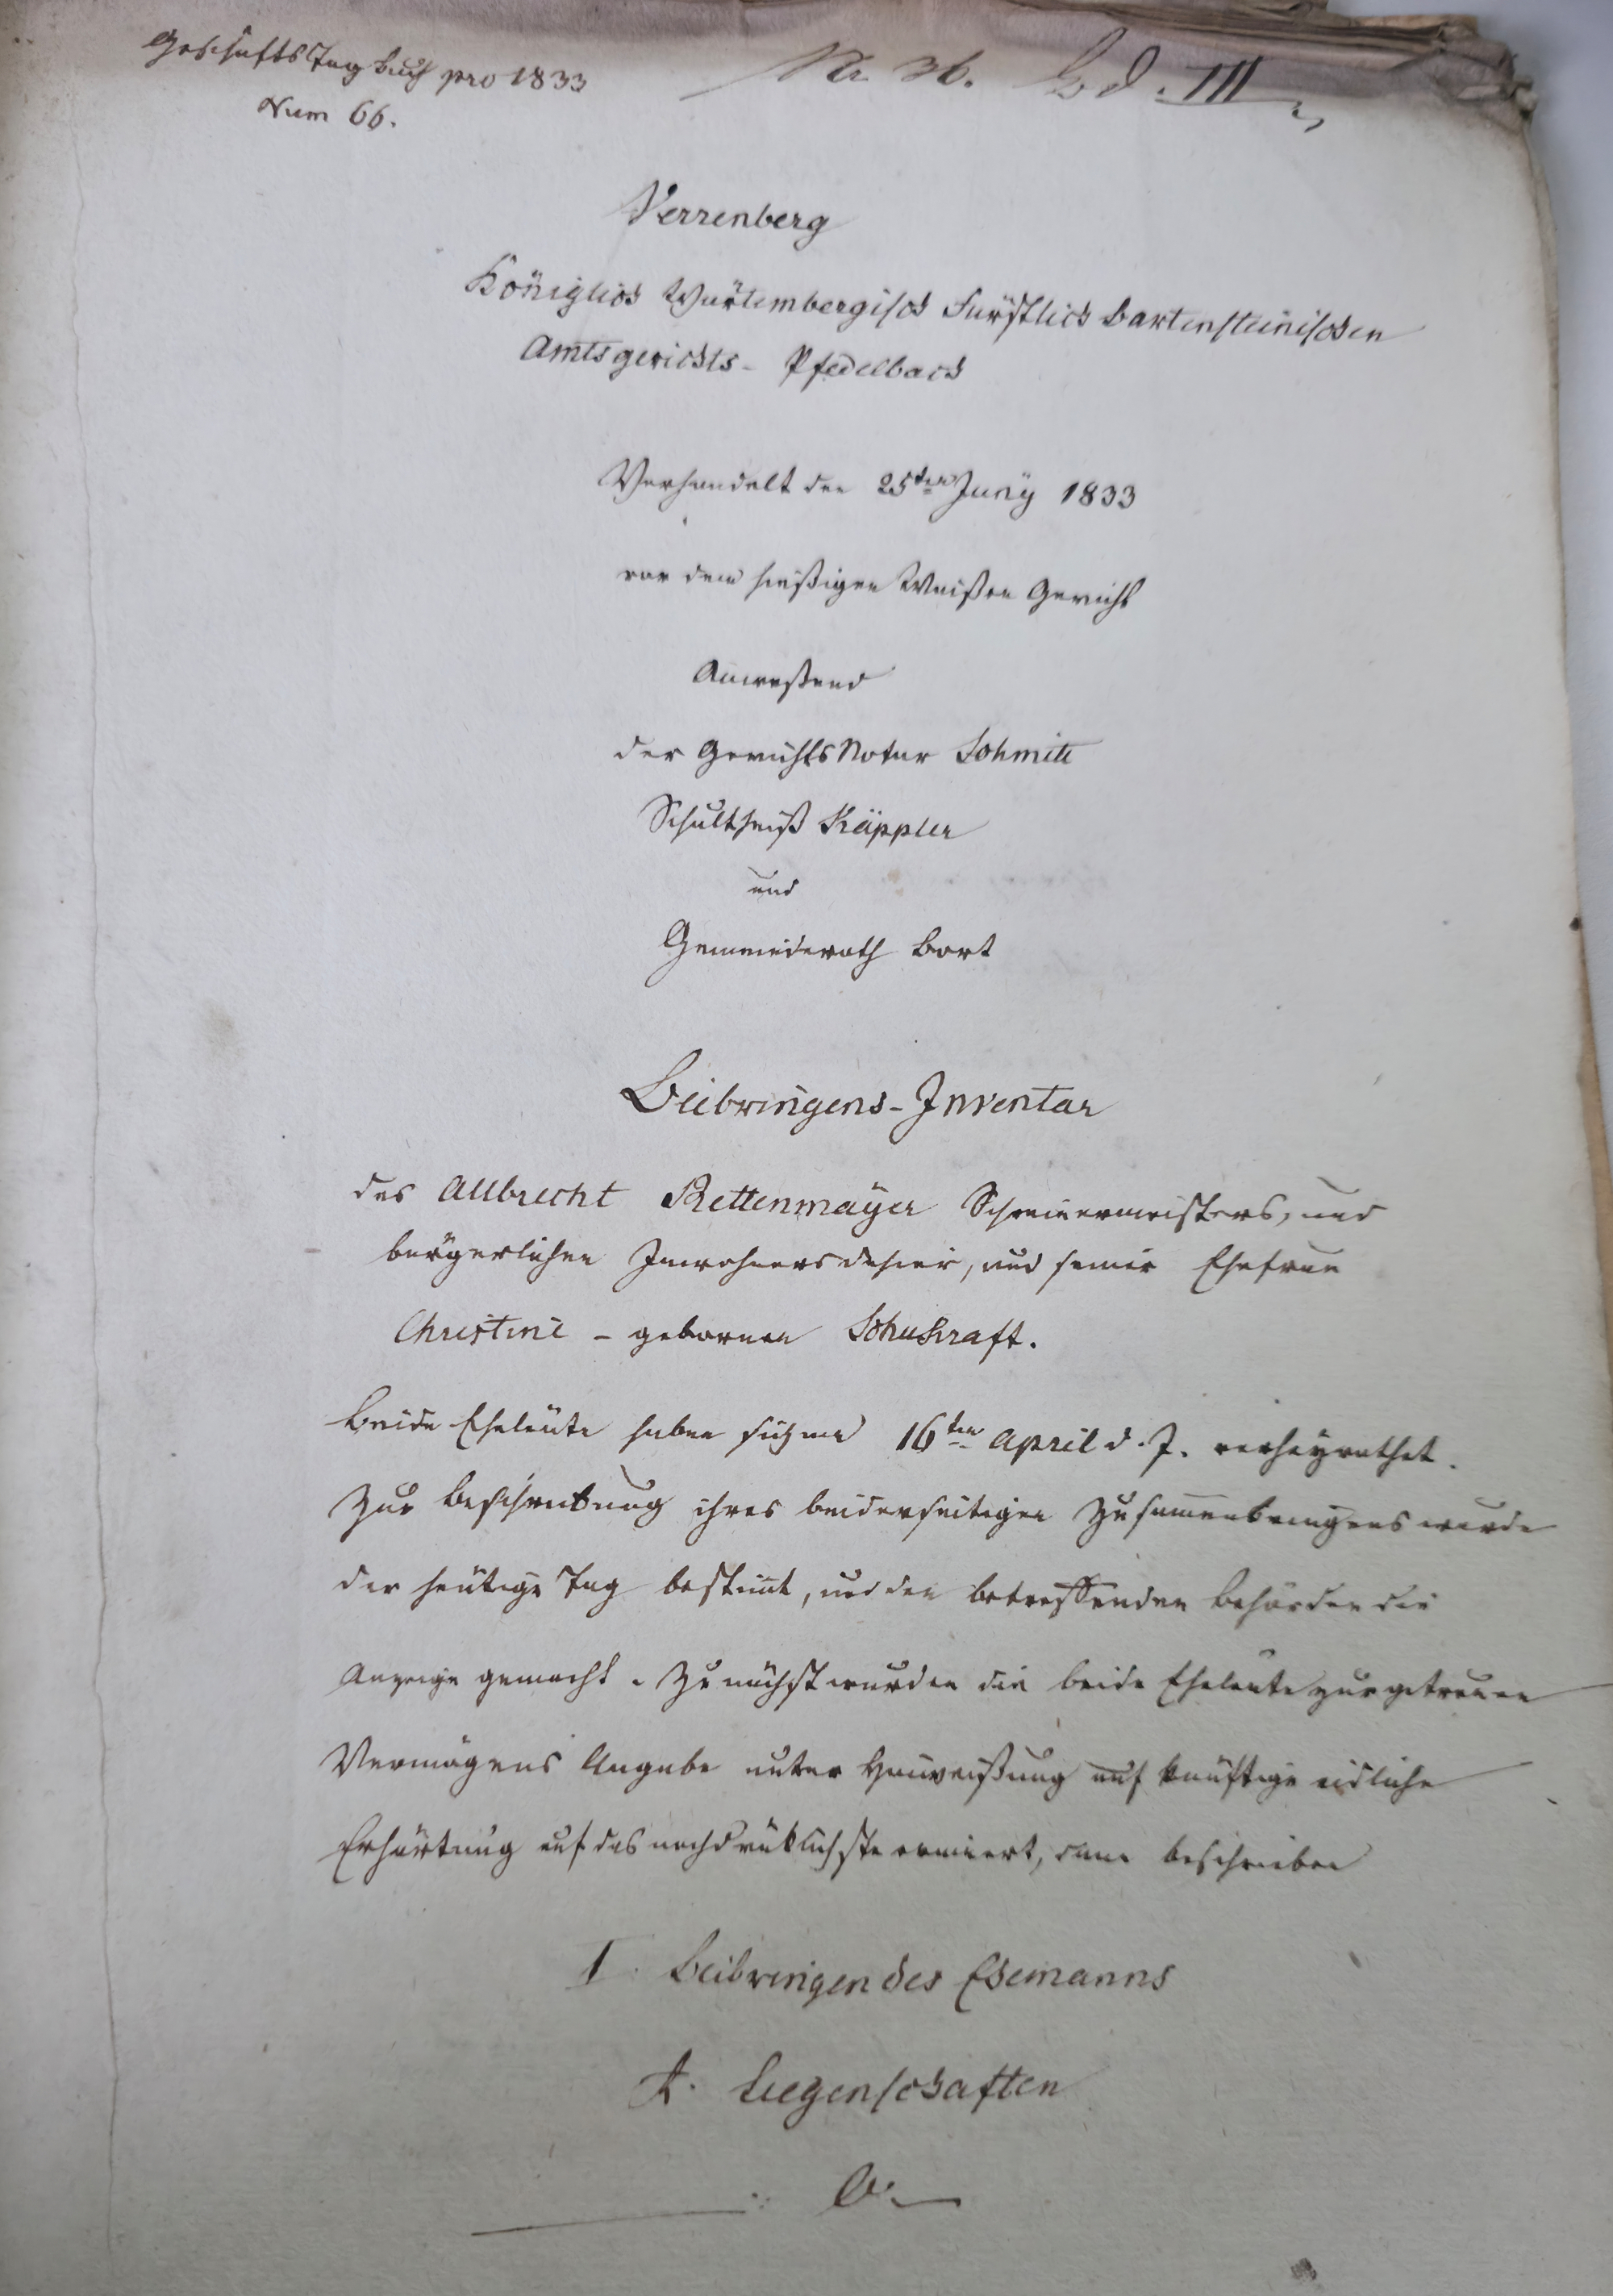 Geschäfts Tag buch pro 1833
Num 66.
Nr. 36. Bd. III
Verrenberg
Königlich Würtembergisch Fürstlich Bartensteinischen
Amtsgerichts - Pfedelbach
Verhandelt den 25ten Juny 1833
vor dem hießigen Waißen Gericht
Anweßend
der Gerichts Notar Schmitt
Schultheiß Käppler
und
Gemeinderath Bort
Beibringens-Inventar
des Allbrecht Rettenmayer Schreinermeisters, und
bürgerlichen Inwohners dahier, und seiner Ehefrau
Christine - gebornen Schukraft.
Beide Eheleüte haben sich am 16ten April d. J. verheyrathet.
Zur Beschreibung ihres beiderseitigen Zusammenbringens wurde
der heütige Tag bestimt, und den betreffenden Behörden die
Anzeige gemacht. Zunächst wurden die beide Eheleute zur getreuen
Vermögens Angabe unter Hinweißung auf künftige eidliche
Erhärtung auf das nachdrüklichste ermuert, dann beschrieben
I. Beibringen des Ehemanns
A. Liegenschaften
0.